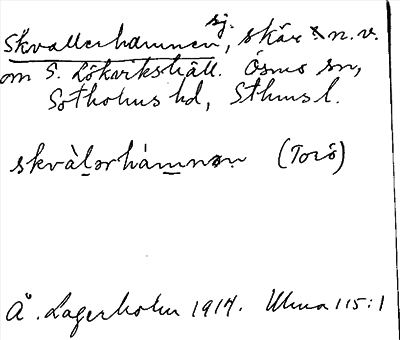 Skvallerhamnen, sj. skär n.v.
om S. Lökvikshäll. Ösmo sn,
Sotholms hd, Sthms l.
skvàlərhàmnən (Torö)
Å. Lagerholm 1914. Ulma 115:1